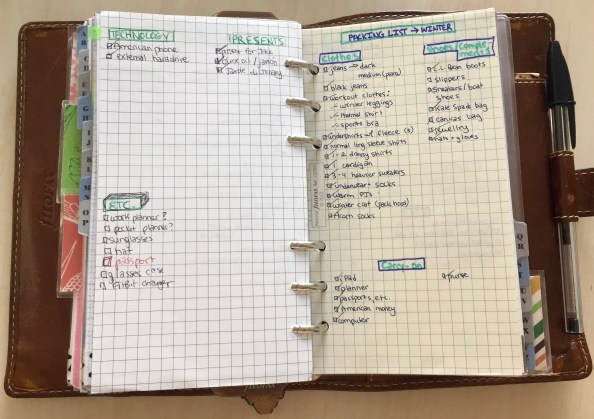 TECHNOLOGY
Armenian phone
external harddrive
PRESENTS
for Jack
ETC.
work planner?
pocket planner?
sunglasses
hat
passport
glasses case
FitBit charger
PACKING LIST → WINTER
Clothes
jeans → dark
medium (patra)
black jeans
workout clothes:
winter leggings
thermal shirt
sports bra
undershirts w/ fleece (3)
normal long sleeve shirts
1-2 dressy shirts
1 cardigan
3-4 heavier sweaters
underwear socks
warm PJs
winter coat (pack hood)
Acorn socks
Shoes/
L.L. Bean boots
slippers
Sneakers/boat
shoes
Kate Spade bag
canvas bag
jewelry
hats + gloves
Carry-on
iPad
planner
passports, etc.
Armenian money
computer
purse
A
B
C
D
E
F
G
H
J
K
L
M
N
O
P
Q
R
S